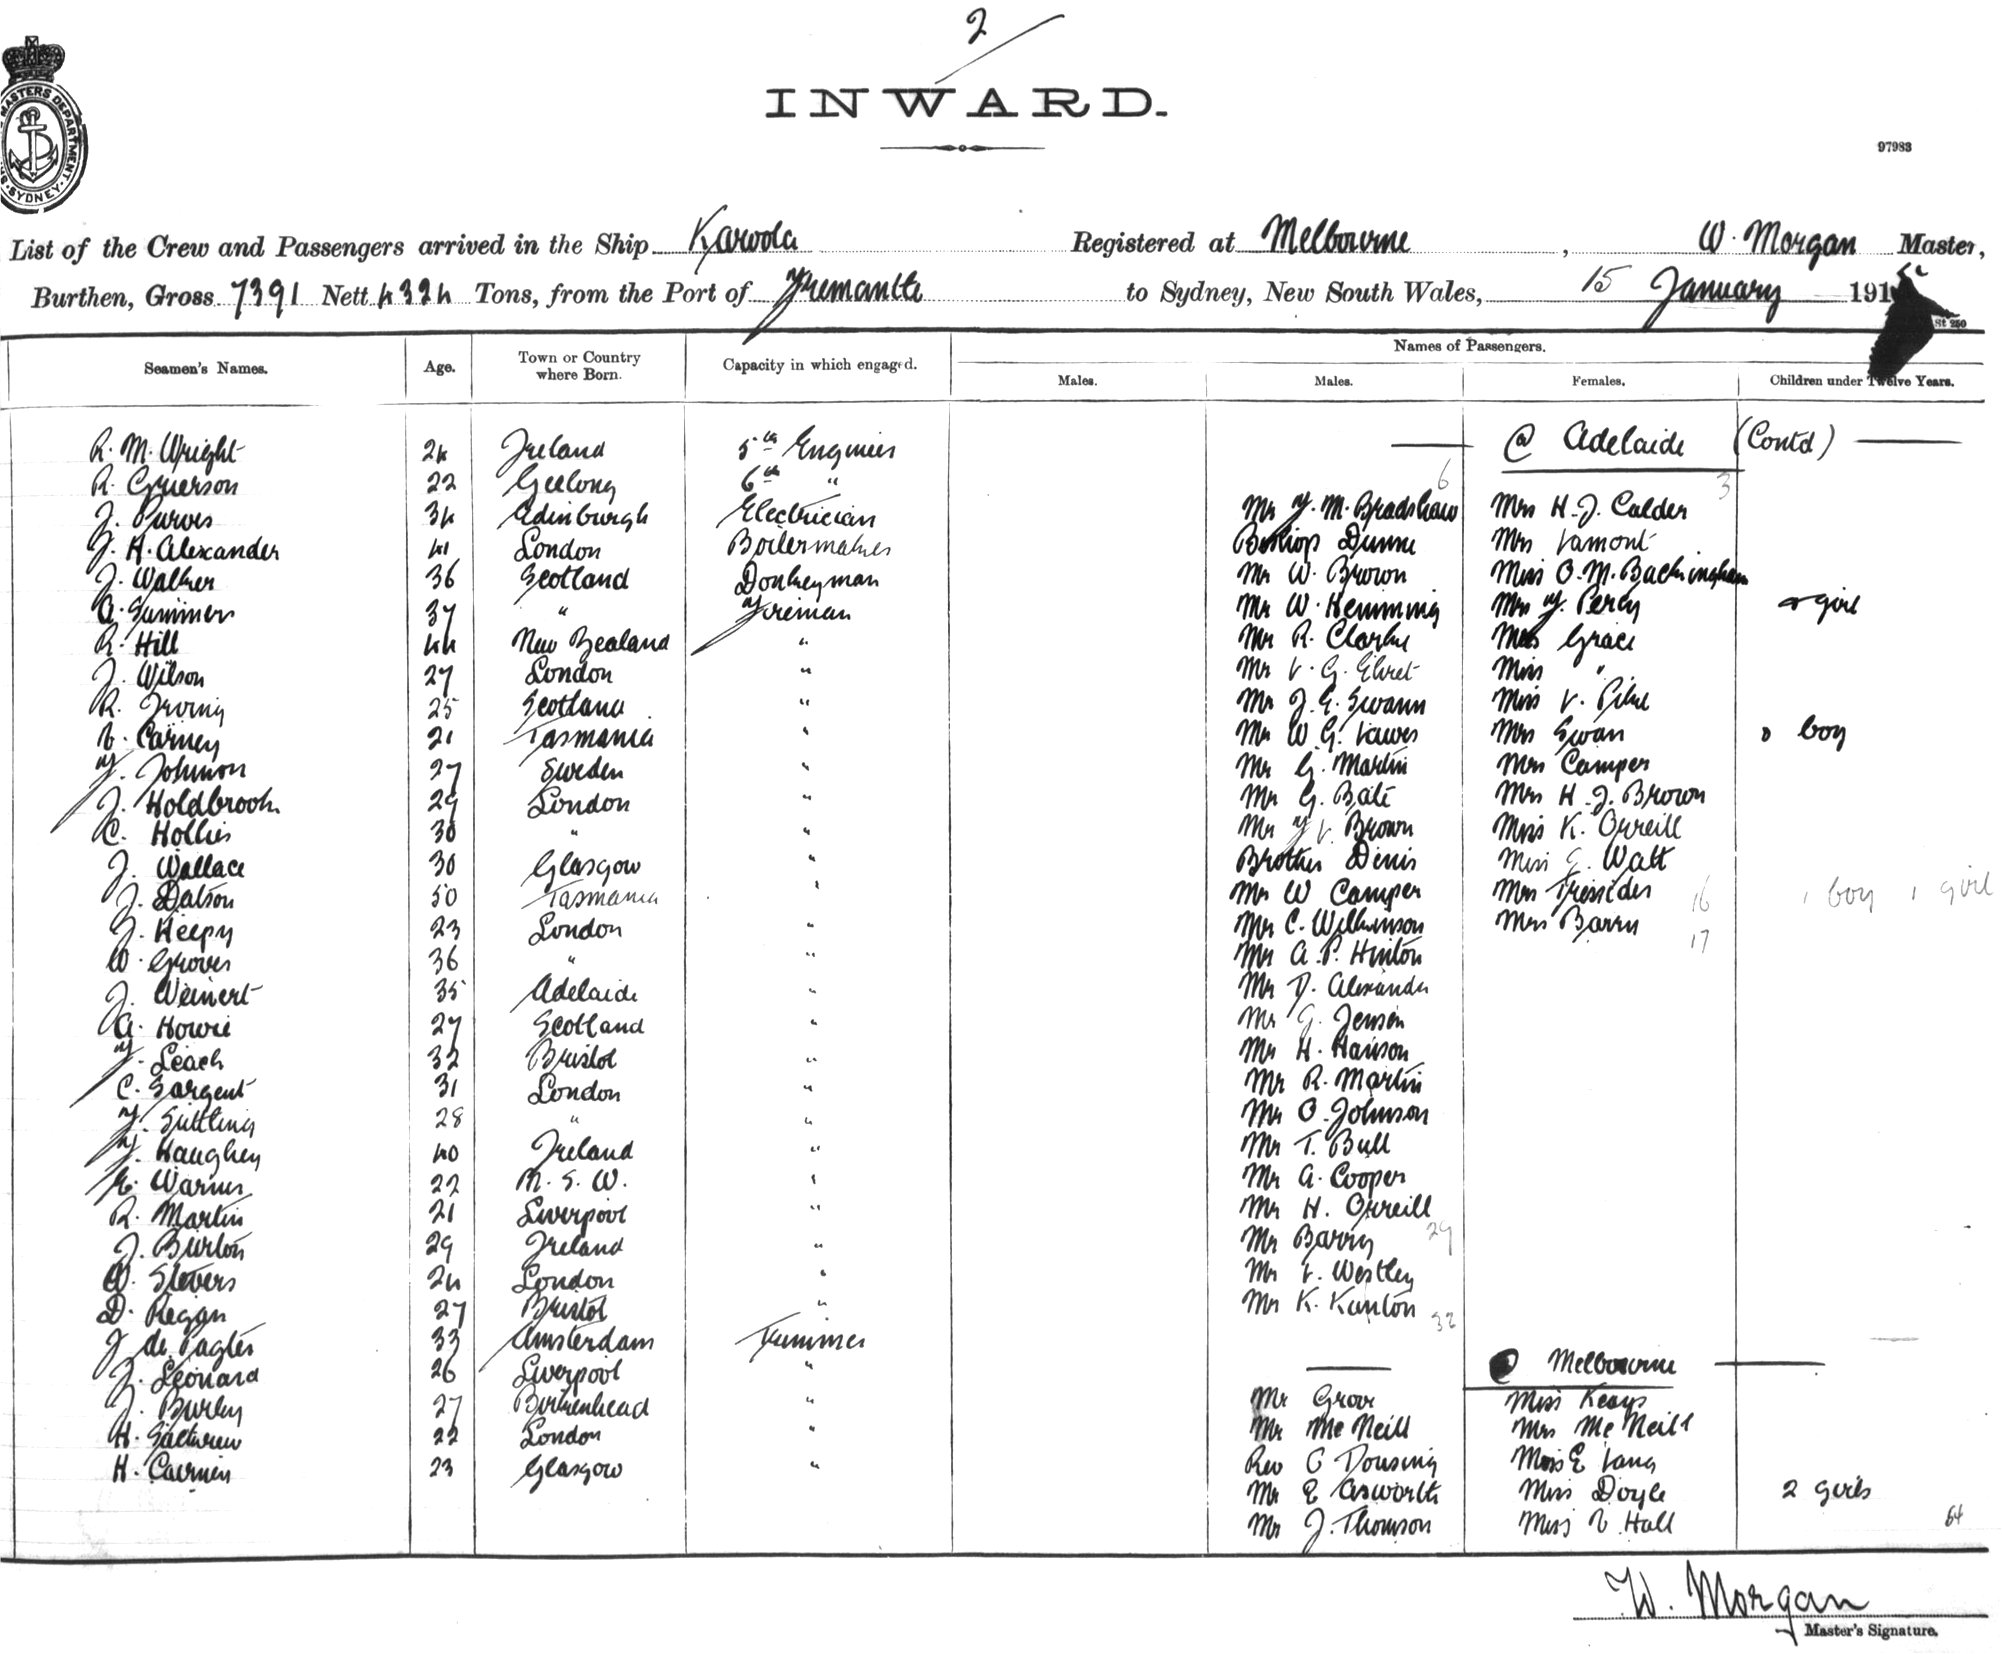 2
INWARD.
MASTERS DEPARTMENT SYDNEY
97983
List of the Crew and Passengers arrived in the Ship Karoola Registered at Melbourne, W. Morgan Master,
Burthen, Gross 7391 Nett 4324 Tons, from the Port of Fremantle to Sydney, New South Wales, 15 January 191
St 250
Names of Passengers.
Seamen's Names. Age. Town or Country where Born. Capacity in which engaged. Males. Males. Females. Children under Twelve Years.
R. M. Wright 24 Ireland 5th Engineer @ Adelaide (Contd)
R. Grierson 22 Geelong 6th " 6 3
J. Purves 34 Edinburgh Electrician Mr F. M. Bradshaw Mrs H. J. Calder
F. H. Alexander 41 London Boilermaker Bishop Dunne Mrs Lamont
J. Walker 36 Scotland Donkeyman Mr W. Brown Miss O. M. Backingham
A. Summers 37 " Fireman Mr W. Hemming Mrs F. Percy girl
R. Hill 44 New Zealand " Mr R. Clarke Grace
J. Wilson 27 London " Mr L. G. Ehret Miss "
R. Irving 25 Scotland " Mr J. E. Swann Miss L. Pike
V. Carney 21 Tasmania " Mr W. G. Lawes Mrs Swan boy
F. Johnson 27 Sweden " Mr G. Martin Mrs Camper
J. Holdbrook 29 London " Mr G. Bate Mrs H. J. Brown
C. Hollies 30 " " Mr F. L. Brown Miss K. Orreill
J. Wallace 30 Glasgow " Brother Denis Miss E. Watt
J. Datson 50 Tasmania " Mr W Camper Mrs Tressider 16 1 boy 1 girl
J. Heepy 23 London " Mr C. Wilkinson Mrs Barry 17
W. Groves 36 " " Mr A. P. Hinton
J. Weinert 35 Adelaide " Mr D. Alexander
A. Howie 27 Scotland " Mr G. Jensen
F. Leach 32 Bristol " Mr H. Hanson
C. Sargent 31 London " Mr R. Martin
F. 28 " " Mr O. Johnson
F. Haughey 40 Ireland " Mr T. Bull
Warner 22 N. S. W. " Mr A. Cooper
R. Martin 21 Liverpool " Mr H. Orreill
J. Burton 29 Ireland " Mr Barry 29
W. Stevers 24 London " Mr L. Westley
D. Regan 27 Bristol " Mr K. Kunton 32
J. de Pagter 33 Amsterdam Trimmer
J. Leonard 26 Liverpool " @ Melbourne
J. Burley 27 Birkenhead " Mr Grove Miss Keays
H. 22 London " Mr McNeill Mrs McNeill
H. 23 Glasgow " Rev C Dousing Miss E Lang
Mr E Asworth Miss Doyle 2 girls
Mr J. Thomson Miss V. Hall 64
W. Morgan
Master's Signature.